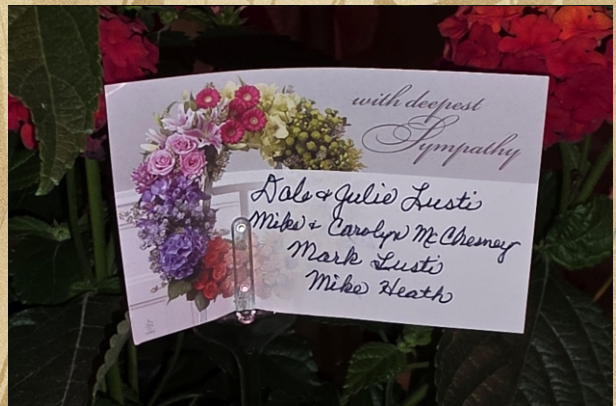 with deepest
Sympathy
Dale & Julie Lusti
Mike & Carolyn McChesney
Mark Lusti
Mike Heath